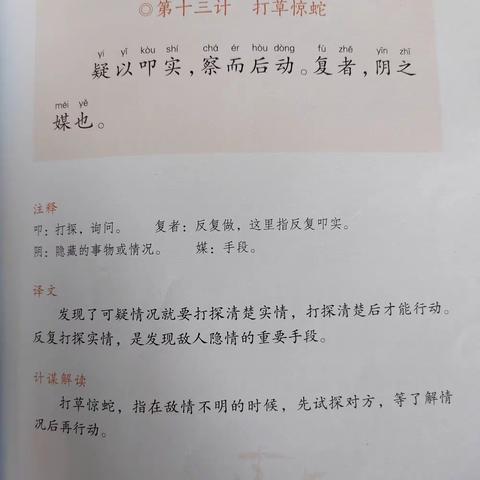 ◎第十三计 打草惊蛇
yí yǐ kòu shí chá ér hòu dòng fù zhě yīn zhī
疑以叩实，察而后动。复者，阴之
méi yě
媒也。
注释
叩：打探，询问。 复者：反复做，这里指反复叩实。
阴：隐藏的事物或情况。 媒：手段。
译文
发现了可疑情况就要打探清楚实情，打探清楚后才能行动。
反复打探实情，是发现敌人隐情的重要手段。
计谋解读
打草惊蛇，指在敌情不明的时候，先试探对方，等了解情
况后再行动。